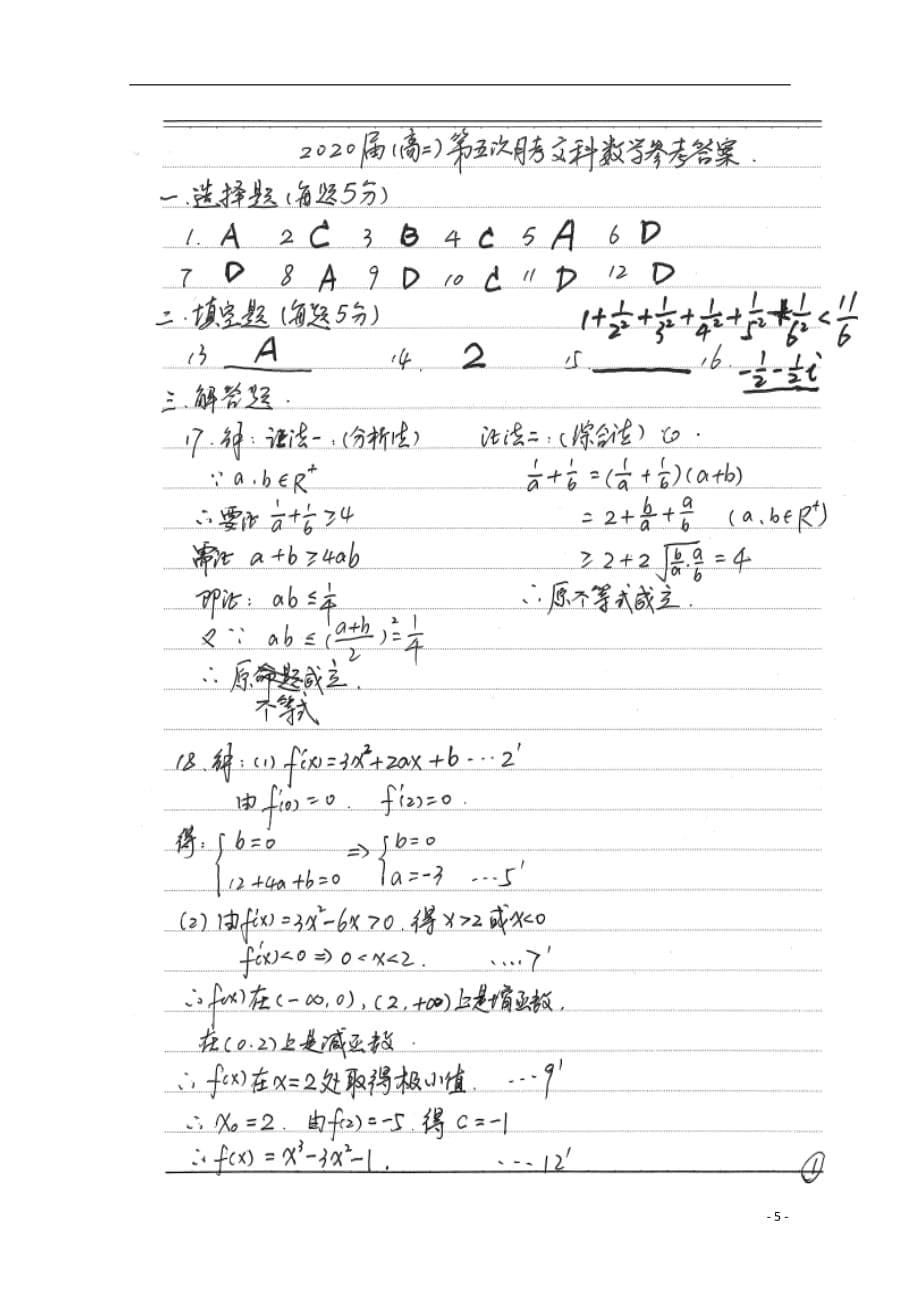 2020届(高二)第五次月考文科数学参考答案.
一.选择题(每题5分)
1. A 2 C 3 B 4 C 5 A 6 D
7 D 8 A 9 D 10 C 11 D 12 D
二.填空题(每题5分)
1+1/2²+1/3²+1/4²+1/5²+1/6²<11/6
13 A 14. 2 15. 16. -1/2-1/2i
三.解答题.
17.解:证法一:(分析法)
∵a.b∈R⁺
∴要证 1/a+1/b≥4
需证 a+b≥4ab
即证: ab≤1/4
又∵ ab≤((a+b)/2)²=1/4
∴原不等式成立.
证法二:(综合法)
1/a+1/b=(1/a+1/b)(a+b)
=2+b/a+a/b (a.b∈R⁺)
≥2+2√(b/a·a/b)=4
∴原不等式成立.
18.解:(1) f'(x)=3x²+2ax+b ···2'
由f'(0)=0. f'(2)=0.
得: { b=0 ⇒ { b=0
12+4a+b=0 a=-3 ···5'
(2)由f'(x)=3x²-6x>0.得x>2或x<0
f'(x)<0⇒0<x<2. ····7'
∴f(x)在(-∞,0),(2,+∞)上是增函数.
在(0.2)上是减函数.
∴f(x)在x=2处取得极小值. ···9'
∴x₀=2. 由f(2)=-5.得 c=-1
∴f(x)=x³-3x²-1. ···12'
①
- 5 -